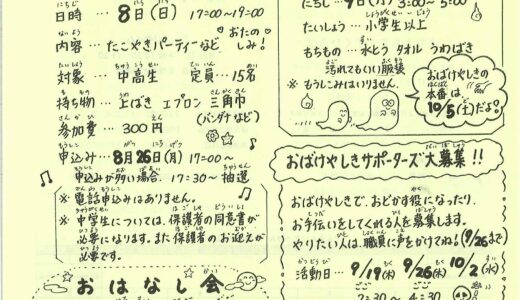 日時 … 8日(日) 17:00～19:00
内容 … たこやきパーティーなど おたのしみ！
対象 … 中高生 定員…15名
持ち物 … 上ばき エプロン 三角巾
(バンダナなど)
参加費 … 300円
申込み … 8月26日(月) 17:00～
申込みが多い場合 17:30～ 抽選
※ 電話申込みはありません。
※ 中学生については、保護者の同意書が
必要になります。また保護者のお迎えが
必要です。
おはなし会
にちじ … 9日(月) 3:00～5:00
たいしょう … 小学生以上
もちもの … 水とう タオル うわばき
汚れてもいい服装
※ もうしこみはいりません。
おばけやしきの
本番は
10/5(土)だよ！
おばけやしきサポーターズ大募集！！
おばけやしきで、おどかす役になったり、
お手伝いをしてくれる人を募集します。
やりたい人は、職員に声をかけてね！(9/26まで)
活動日 … 9/19(木) 9/26(木) 10/2(水)
3:30～4:30